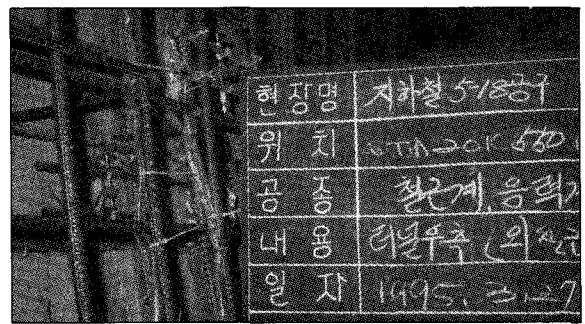 현장명 지하철 5-18공구
위 치 STA 20K 550
공 종 철근계, 응력
내 용 터널우측 (외측
일 자 1995. 3. 27